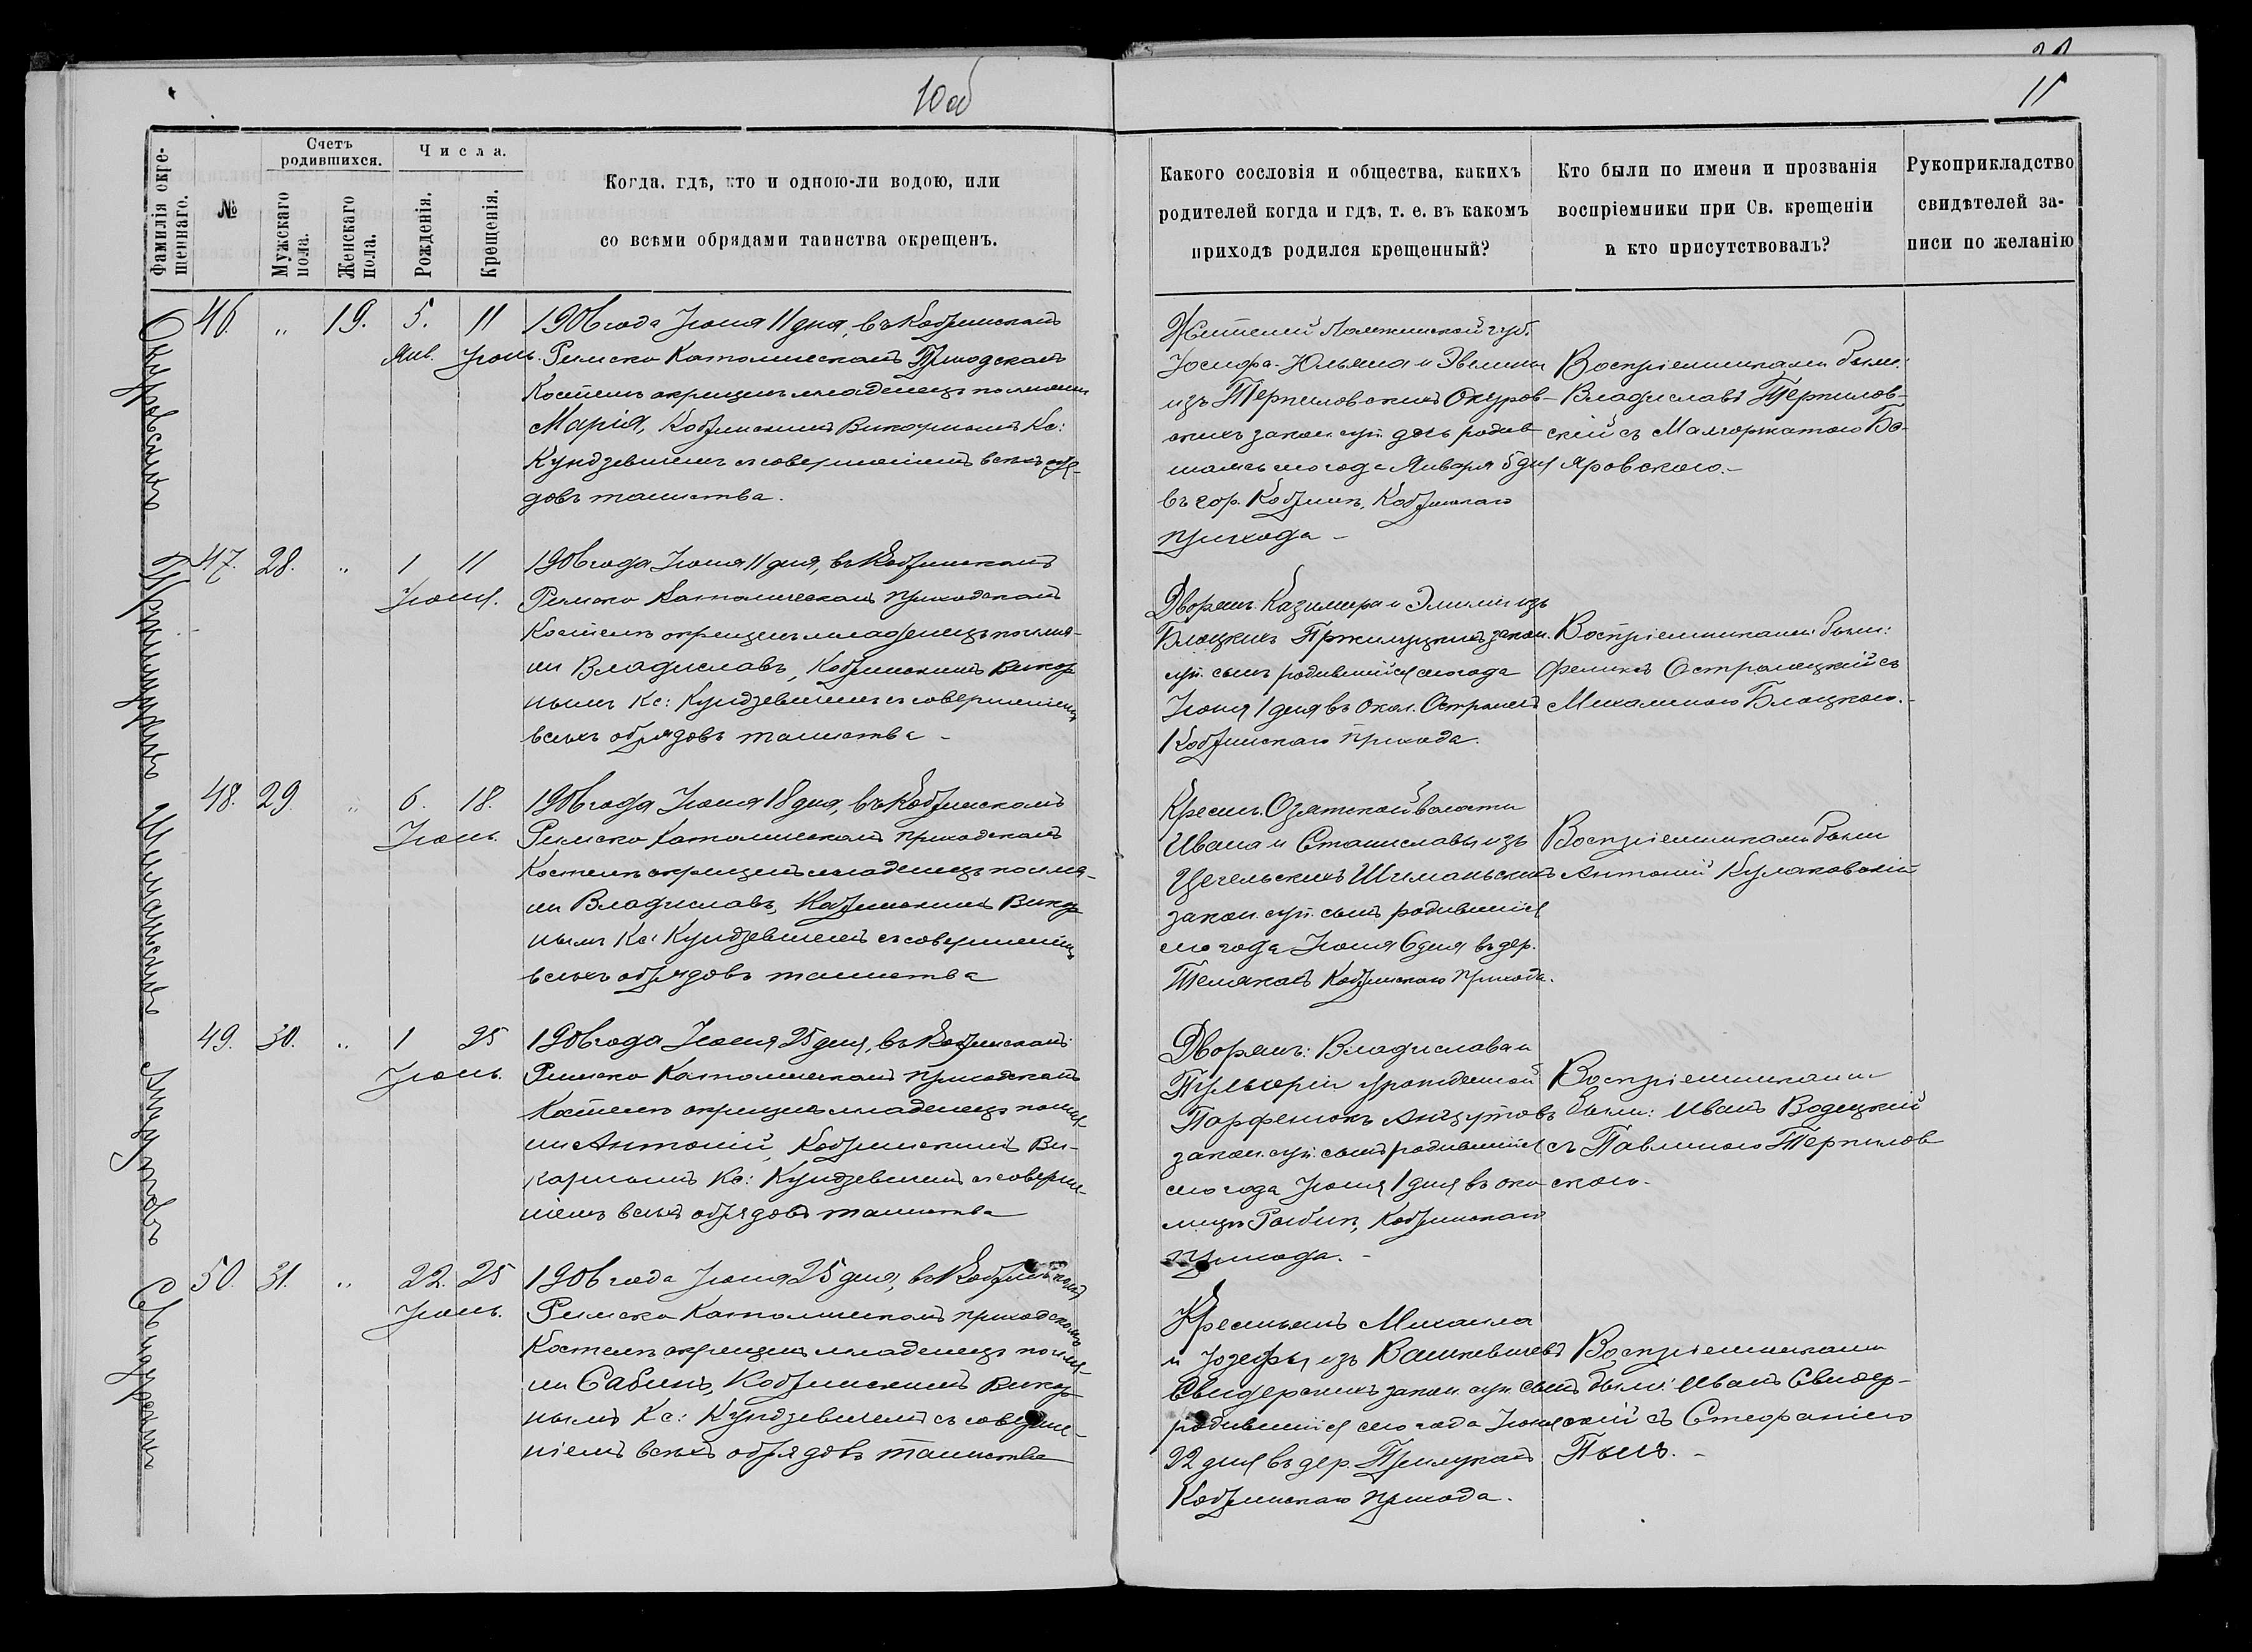 10 об
11
Фамилія окре-
щеннаго.
№
Счетъ
родившихся.
Мужскаго
пола.
Женскаго
пола.
Числа.
Рожденія.
Крещенія.
Когда, гдѣ, кто и одною-ли водою, или
со всѣми обрядами таинства окрещенъ.
Какого сословія и общества, какихъ
родителей когда и гдѣ, т. е. въ какомъ
приходѣ родился крещенный?
Кто были по имени и прозванія
воспріемники при Св. крещеніи
и кто присутствовалъ?
Рукоприкладство
свидѣтелей за-
писи по желанію
46. " 19. 5. 11
Янв. Іюнь.
1906 года Іюня 11 дня, въ Кобринскомъ
Римско Католическомъ Приходскомъ
Костелѣ окрещенъ младенецъ по имени
Марія, Кобринскимъ Викарнымъ Кс:
Кундзевичемъ съ совершеніемъ всѣхъ обря-
довъ таинства.
Жителей Ломжинской губ.
Іосифа-Юльяна и Эвелины
изъ Терпиловскихъ Окуров-
скихъ закон. суп. дочь родив
шаяся сего года Января 5 дня
въ гор. Кобринѣ, Кобринскаго
прихода -
Воспріемниками были:
Владиславъ Терпилов-
скій съ Малгоржатою Бо-
яровскою.-
47. 28. " 1 11
Іюня.
1906 года Іюня 11 дня, въ Кобринскомъ
Римско Католическомъ приходскомъ
Костелѣ окрещенъ младенецъ по име-
ни Владиславъ, Кобринскимъ Викар
нымъ Кс: Кундзевичемъ съ совершеніемъ
всѣхъ обрядовъ таинства -
Дворянъ. Казимира и Эмиліи изъ
Блоцкихъ Пржилуцкихъ закон.
суп. сынъ родившійся сего года
Іюня 1 дня въ окол. Остромеч
Кобринскаго прихода.
Воспріемниками были:
Феликсъ Остромецкій съ
Михалиною Блоцкою.-
48. 29. " 6. 18.
Іюнь.
1906 года Іюня 18 дня, въ Кобринскомъ
Римско Католическомъ приходскомъ
Костелѣ окрещенъ младенецъ по име-
ни Владиславъ, Кобринскимъ Викар
нымъ Кс: Кундзевичемъ съ совершеніемъ
всѣхъ обрядовъ таинства
Крестьян. Озятской волости
Ивана и Станиславы изъ
Цегельскихъ Шиманьскихъ
закон. суп. сынъ родившійся
сего года Іюня 6 дня въ дер.
Телякахъ Кобринскаго прихода.
Воспріемниками были
Антоній Кулаковскій
49. 30. " 1 25
Іюнь.
1906 года Іюня 25 дня, въ Кобринскомъ
Римско Католическомъ приходскомъ
Костелѣ окрещенъ младенецъ по име
ни Антоній, Кобринскимъ Ви-
карнымъ Кс: Кундзевичемъ съ соверше-
ніемъ всѣхъ обрядовъ таинства
Дворянъ: Владислава и
Пульхеріи урожденной
Парфенюкъ Анцутовъ
закон. суп. сынъ родившійся
сего года Іюня 1 дня въ око
лицѣ Рыбнѣ, Кобринскаго
прихода. -
Воспріемниками
были: Иванъ Водецкій
съ Павлиною Терпилов
скою.-
50. 31. " 22. 25
Іюнь.
1906 года Іюня 25 дня, въ Кобринскомъ
Римско Католическомъ приходскомъ
Костелѣ окрещенъ младенецъ по име-
ни Сабинъ, Кобринскимъ Викар
нымъ Кс: Кундзевичемъ съ соверше-
ніемъ всѣхъ обрядовъ таинства
Крестьянъ Михаила
и Юзефы изъ Вашкевичевъ
Свидерскихъ закон. суп. сынъ
родившійся сего года Іюня
22 дня въ дер. Прилукахъ
Кобринскаго прихода.
Воспріемниками
были: Иванъ Свидер-
скій съ Стефаніею
Пыль. -
Окуровскихъ
Пржилуцкихъ
Шиманьскихъ
Анцутовъ
Свидерскихъ